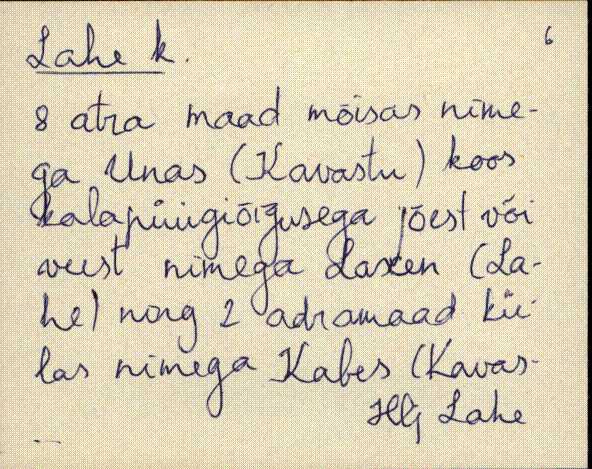 6
Lahe k.
8 atra maad mõisas nime-
ga Unas (Kavastu) koos
kalapüügiõigusega jõest või
veest nimega Laxen (La-
he) ning 2 adramaad kü-
las nimega Kabes (Kavas-
Lahe